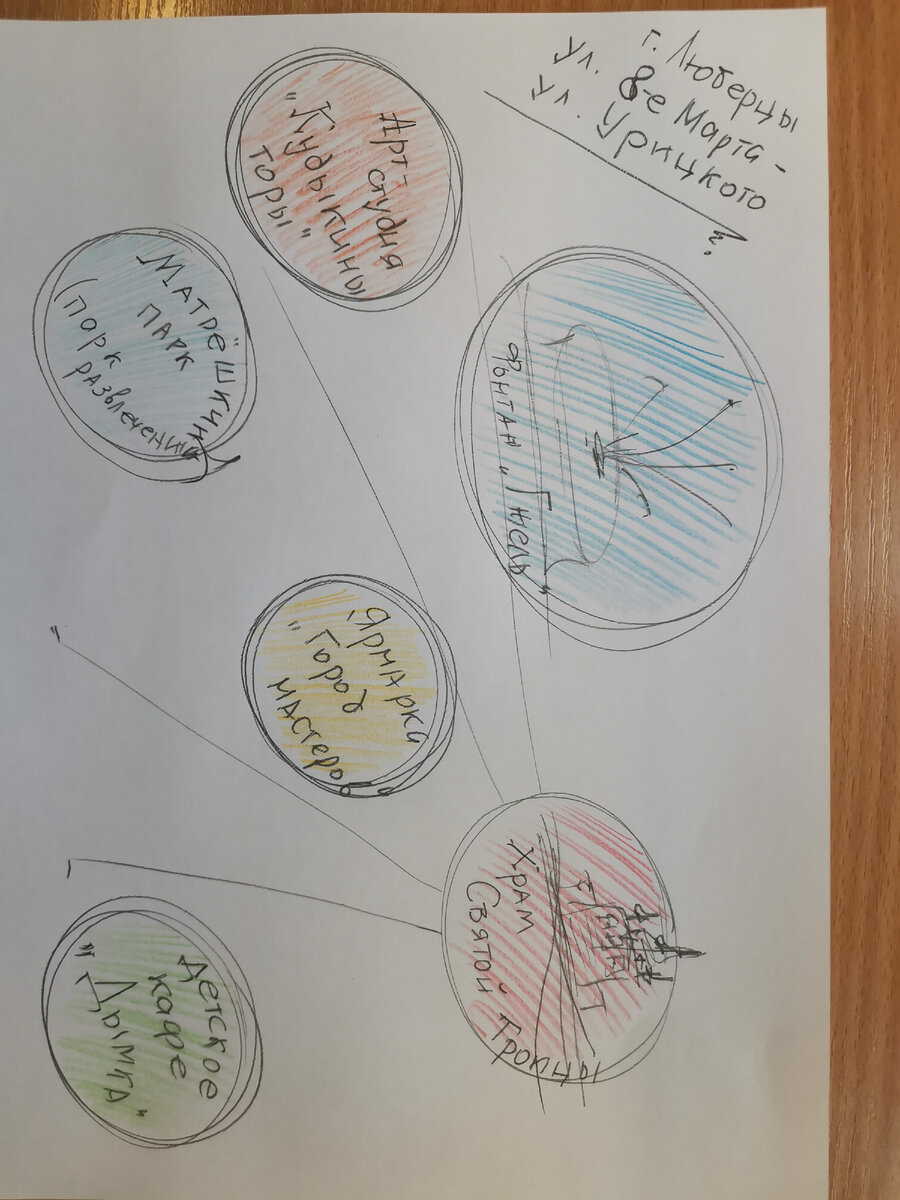 г. Люберцы
ул. 8-е Марта -
ул. Урицкого
?
Арт-
студия
"Кудыкины
горы"
Фонтан "Гжель"
Матрёшкин
парк
(парк
развлечений)
Ярмарки
"Город
мастеров"
Храм
Святой Троицы
Детское
кафе
"Дымка"